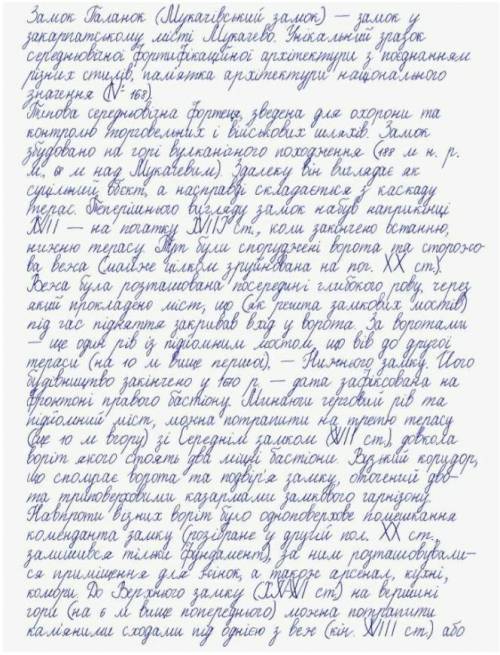 Замок Паланок (Мукачівський замок) — замок у
закарпатському місті Мукачево. Унікальний зразок
середньовічної фортифікаційної архітектури з поєднанням
різних стилів, пам'ятка архітектури національного
значення (№ 168).
Типова середньовічна фортеця, зведена для охорони та
контролю торговельних і військових шляхів. Замок
збудовано на горі вулканічного походження (188 м н. р.
м., 68 м над Мукачевим). Здалеку він виглядає як
суцільний об'єкт, а насправді складається з каскаду
терас. Теперішнього вигляду замок набув наприкінці
XVII — на початку XVIII ст., коли закінчено останню,
нижню терасу. Тут були споруджені ворота та сторожо-
ва вежа (майже цілком зруйнована на поч. XX ст.).
Вежа була розташована посередині глибокого рову, через
який прокладено міст, що (як решта замкових мостів)
під час підняття закривав вхід у ворота. За воротами
— ще один рів із підйомним мостом, що вів до другої
тераси (на 10 м вище першої), — Нижнього замку. Його
будівництво закінчено у р. — дата зафіксована на
фронтоні правого бастіону. Минаючи черговий рів та
підйомний міст, можна потрапити на третю терасу
(ще 10 м вгору) зі Середнім замком (XVII ст.), довкола
воріт якого стоять два міцні бастіони. Вузький коридор,
що сполучає ворота та подвір'я замку, оточений дво-
та триповерховими казармами замкового гарнізону.
Навпроти візних воріт було одноповерхове помешкання
коменданта замку (розібране у другій пол. XX ст.,
залишився тільки фундамент), за ним розташовували-
ся приміщення для жінок, а також арсенал, кухні,
комори. До Верхнього замку (XIV-XVI ст.) на вершині
гори (на 6 м вище попереднього) можна потрапити
кам'яними сходами під однією з веж (кін. XVIII ст.) або